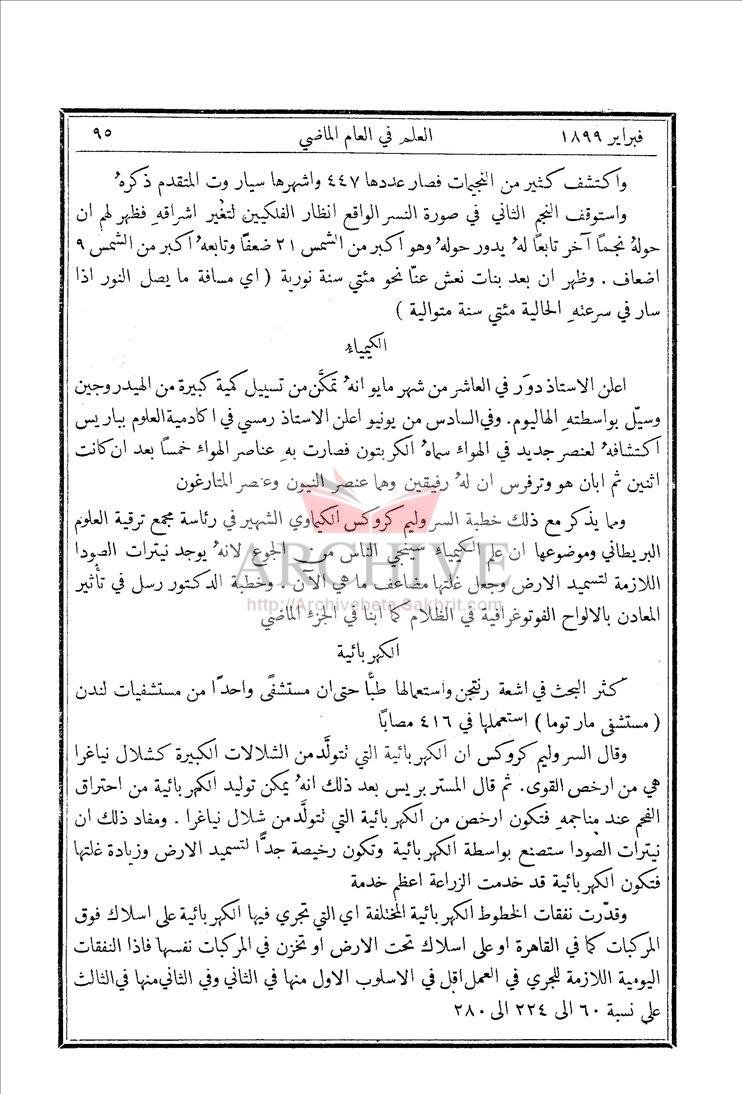 فبراير ١٨٩٩ العلم في العام الماضي ٩٥
واكتشف كثير من النجيمات فصار عددها ٤٤٧ واشهرها سيار وت المتقدم ذكرهُ
واستوقف النجم الثاني في صورة النسر الواقع انظار الفلكيين لتغير اشراقهِ فظهر لهم ان
حولهُ نجمًا آخر تابعًا لهُ يدور حولهُ وهو اكبر من الشمس ٢١ ضعفًا وتابعهُ اكبر من الشمس ٩
اضعاف . وظهر ان بعد بنات نعش عنّا نحو مئتي سنة نورية ( اي مسافة ما يصل النور اذا
سار في سرعتهِ الحالية مئتي سنة متوالية )
الكيمياء
اعلن الاستاذ دوَر في العاشر من شهر مايو انهُ تمكَّن من تسييل كمية كبيرة من الهيدروجين
وسيّل بواسطتهِ الهاليوم. وفي السادس من يونيو اعلن الاستاذ رمسي في اكادمية العلوم بباريس
اكتشافهُ لعنصر جديد في الهواء سماهُ الكربتون فصارت بهِ عناصر الهواء خمسًا بعد ان كانت
اثنين ثم ابان هو وترفرس ان لهُ رفيقين وهما عنصر النيون وعنصر المتارغون
ومما يذكر مع ذلك خطبة السر وليم كروكس الكيماوي الشهير في رئاسة مجمع ترقية العلوم
البريطاني وموضوعها ان علم الكيمياء سينجي الناس من الجوع لانهُ يوجد نيترات الصودا
اللازمة لتسميد الارض وجعل غلتها مضاعف ما هي الآن . وخطبة الدكتور رسل في تأثير
المعادن بالالواح الفوتوغرافية في الظلام كما ابنا في الجزء الماضي
ARCHIVE
http://Archivebeta.Sakhrit.com
الكهربائية
كثر البحث في اشعة رنتجن واستعمالها طبًّا حتى ان مستشفًى واحدًا من مستشفيات لندن
( مستشفى مار توما ) استعملها في ٤١٦ مصابًا
وقال السر وليم كروكس ان الكهربائية التي تتولَّد من الشلالات الكبيرة كشلال نياغرا
هي من ارخص القوى. ثم قال المستر بريس بعد ذلك انهُ يمكن توليد الكهربائية من احتراق
الفحم عند مناجمهِ فتكون ارخص من الكهربائية التي تتولَّد من شلال نياغرا . ومفاد ذلك ان
نيترات الصودا ستصنع بواسطة الكهربائية وتكون رخيصة جدًّا لتسميد الارض وزيادة غلتها
فتكون الكهربائية قد خدمت الزراعة اعظم خدمة
وقدّرت نفقات الخطوط الكهربائية المختلفة اي التي تجري فيها الكهربائية على اسلاك فوق
المركبات كما في القاهرة او على اسلاك تحت الارض او تخزن في المركبات نفسها فاذا النفقات
اليومية اللازمة للجري في العمل اقل في الاسلوب الاول منها في الثاني وفي الثاني منها في الثالث
على نسبة ٦٠ الى ٢٢٤ الى ٢٨٠